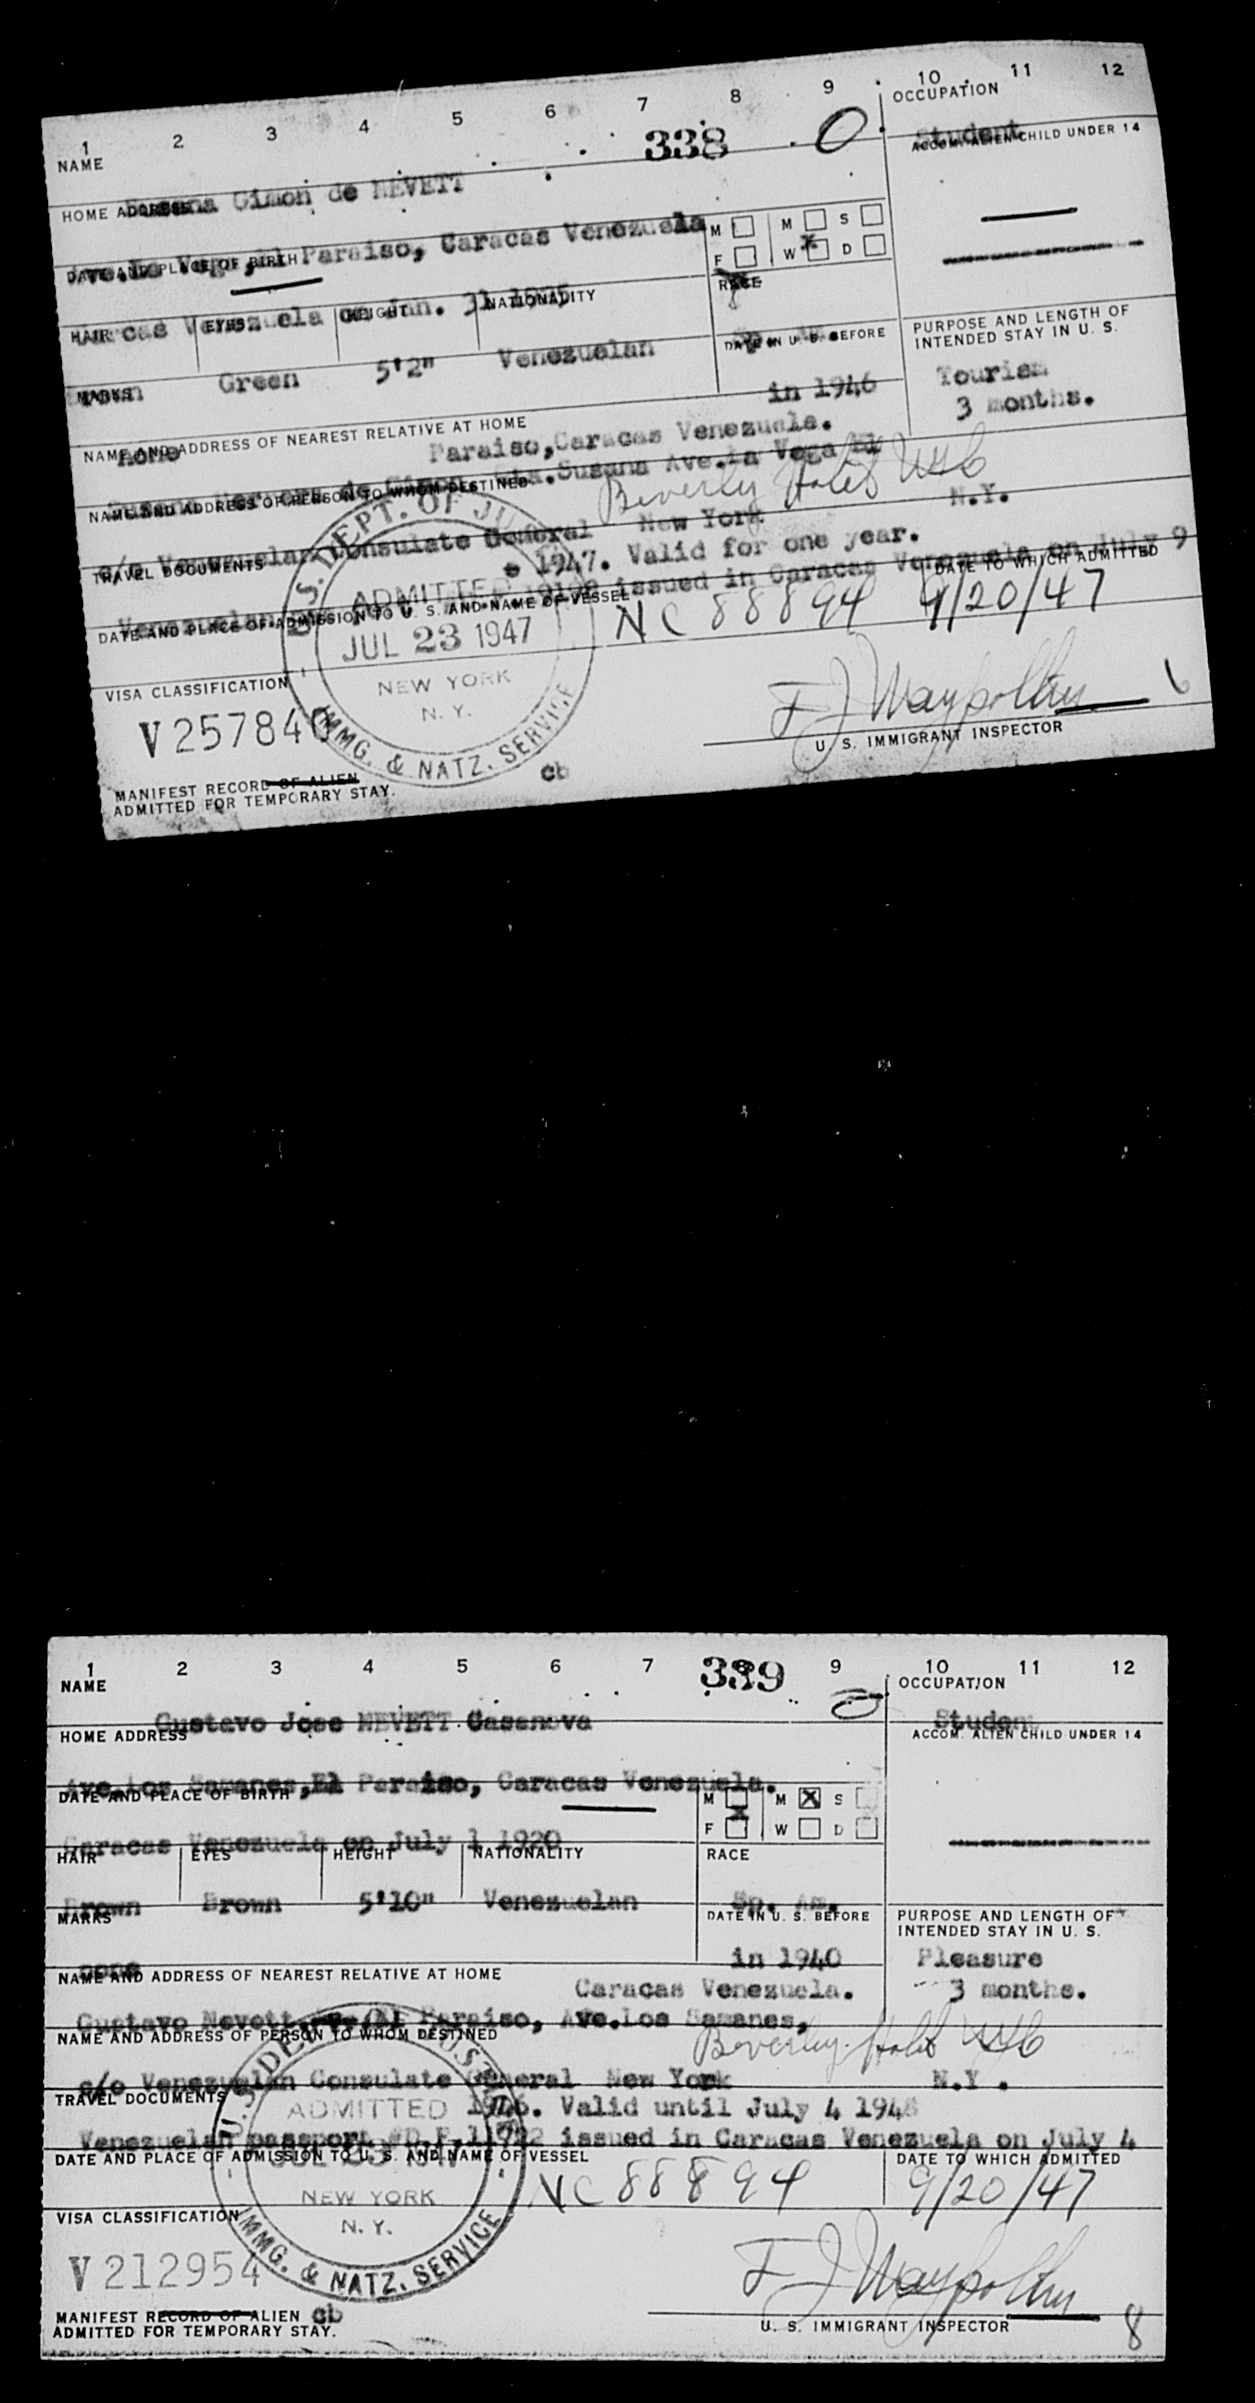 1 2 3 4 5 6 7 8 9 10 11 12
NAME
338
O
OCCUPATION
Student
Susana Gimon de NEVETT
ACCOM. ALIEN CHILD UNDER 14
HOME ADDRESS
Ave.La Vega,El Paraiso, Caracas Venezuela
M M S
F W D
x
DATE AND PLACE OF BIRTH
Caracas Venezuela on Jan. 31 1925
RACE
HAIR EYES HEIGHT NATIONALITY
Sp. Am.
Brown Green 5'2" Venezuelan
DATE IN U. S. BEFORE
in 1946
PURPOSE AND LENGTH OF
INTENDED STAY IN U. S.
Tourism
3 months.
MARKS
none
NAME AND ADDRESS OF NEAREST RELATIVE AT HOME
Paraiso,Caracas Venezuela.
Susana de Gimon Ave.La Vega El
NAME AND ADDRESS OF PERSON TO WHOM DESTINED
Beverly Hotel NYC
c/o Venezuelan Consulate General New York N.Y.
TRAVEL DOCUMENTS
1947. Valid for one year.
Venezuelan issued in Caracas Venezuela on July 9
DATE AND PLACE OF ADMISSION TO U. S. AND NAME OF VESSEL
NC 88894
DATE TO WHICH ADMITTED
9/20/47
U.S. DEPT. OF JUSTICE
ADMITTED
JUL 23 1947
NEW YORK
N. Y.
IMMG. & NATZ. SERVICE
VISA CLASSIFICATION
V257840
6
U. S. IMMIGRANT INSPECTOR
cb
MANIFEST RECORD OF ALIEN
ADMITTED FOR TEMPORARY STAY.
1 2 3 4 5 6 7 8 9 10 11 12
NAME
339
OCCUPATION
Student
Gustavo Jose NEVETT Casanova
ACCOM. ALIEN CHILD UNDER 14
HOME ADDRESS
Ave.Los Samanes,El Paraiso, Caracas Venezuela.
M M x S
x
F W D
DATE AND PLACE OF BIRTH
Caracas Venezuela on July 1 1920
RACE
HAIR EYES HEIGHT NATIONALITY
Sp. Am.
Brown Brown 5'10" Venezuelan
DATE IN U. S. BEFORE
in 1940
PURPOSE AND LENGTH OF
INTENDED STAY IN U. S.
Pleasure
3 months.
MARKS
none
NAME AND ADDRESS OF NEAREST RELATIVE AT HOME
Caracas Venezuela.
Gustavo Nevett El Paraiso, Ave.Los Samanes,
NAME AND ADDRESS OF PERSON TO WHOM DESTINED
Beverley Hotel NYC
c/o Venezuelan Consulate General New York N.Y.
TRAVEL DOCUMENTS
1946. Valid until July 4 1948
Venezuelan passport #D.F.11922 issued in Caracas Venezuela on July 4
DATE AND PLACE OF ADMISSION TO U. S. AND NAME OF VESSEL
NC 88894
DATE TO WHICH ADMITTED
9/20/47
U.S. DEPT. OF JUSTICE
ADMITTED
JUL 23 1947
NEW YORK
N. Y.
IMMG. & NATZ. SERVICE
VISA CLASSIFICATION
V212954
MANIFEST RECORD OF ALIEN cb
ADMITTED FOR TEMPORARY STAY.
U. S. IMMIGRANT INSPECTOR
8